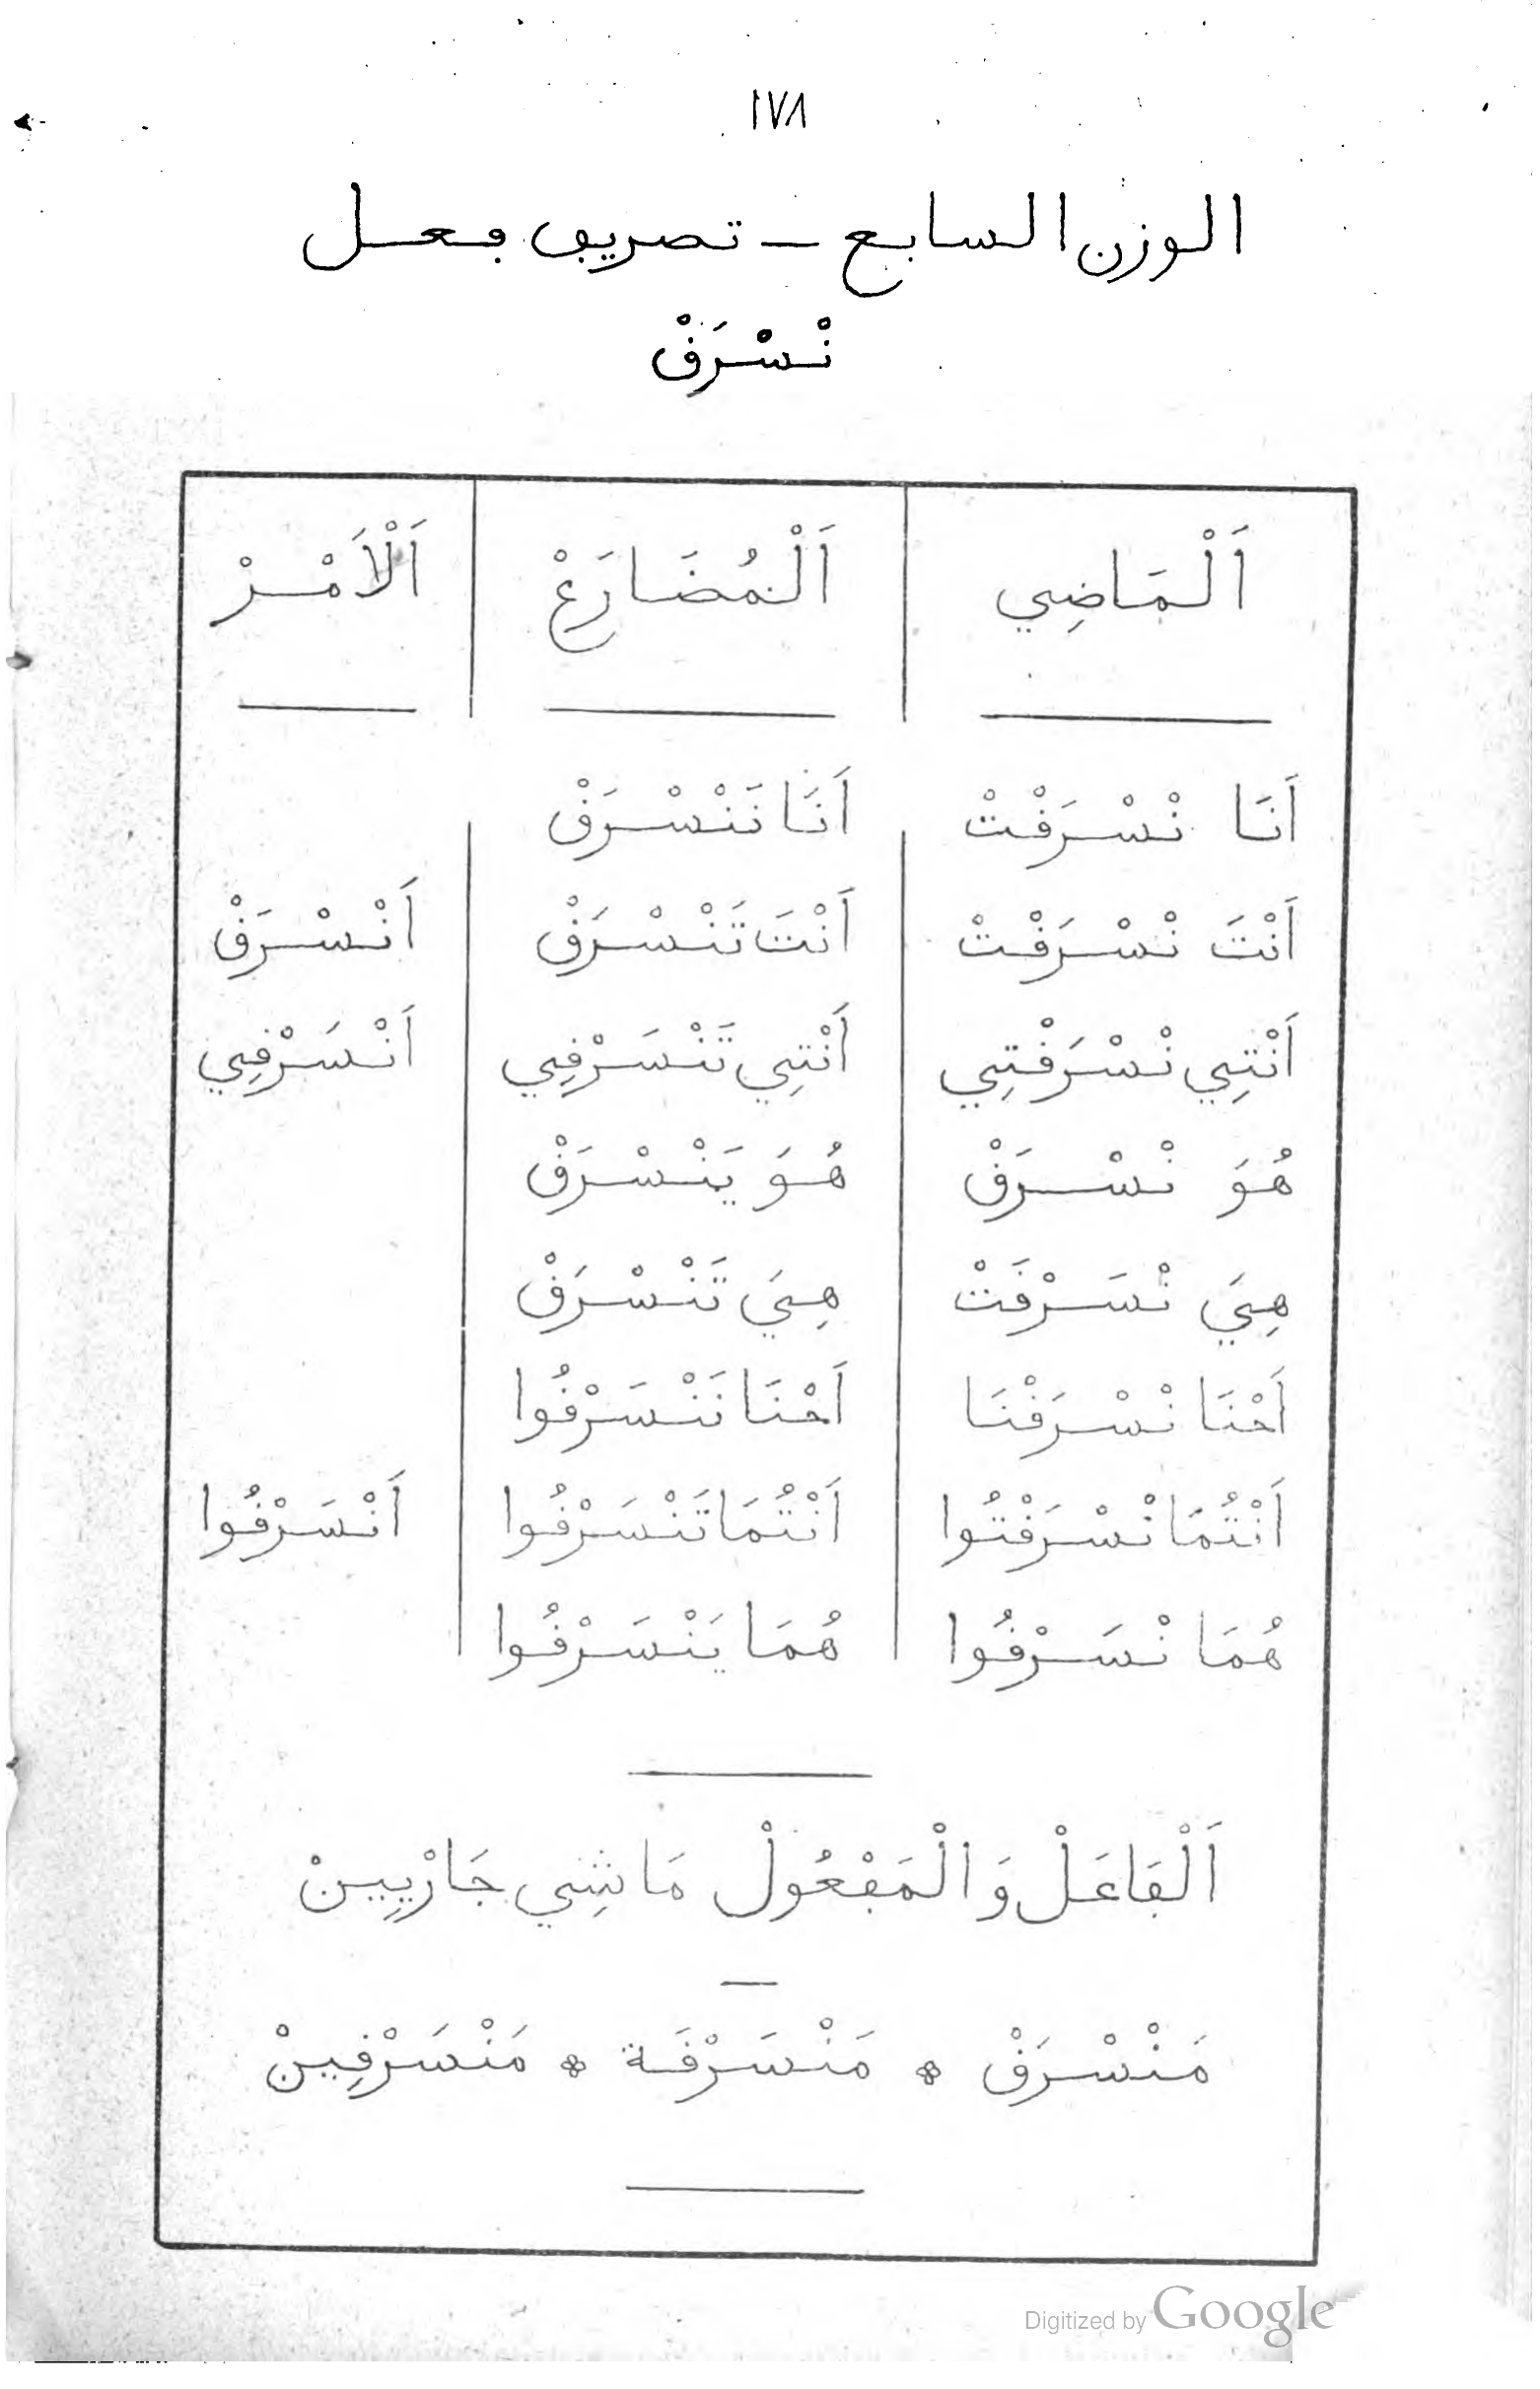 ١٧٨
الوزن السابع — تصريڢ ڢعل
نْسْرَڧْ
اَلْمَاضِي اَلْمُضَارَعْ اَلْاَمْرْ
اَنَا نْسْرَڧْتْ اَنَا نَنْسْرَڧْ
اَنْتَ نْسْرَڧْتْ اَنْتَ تَنْسْرَڧْ اَنْسْرَڧْ
اَنْتِي نْسْرَڧْتِي اَنْتِي تَنْسَرْڧِي اَنْسَرْڧِي
هُوَ نْسْرَڧْ هُوَ يَنْسْرَڧْ
هِيَ نْسَرْڧَتْ هِيَ تَنْسْرَڧْ
اَحْنَا نْسْرَڧْنَا اَحْنَا نَنْسَرْڧُوا
اَنْتُمَا نْسْرَڧْتُوا اَنْتُمَا تَنْسَرْڧُوا اَنْسَرْڧُوا
هُمَا نْسَرْڧُوا هُمَا يَنْسَرْڧُوا
اَلْڢَاعَلْ وَالْمَڢْعُولْ مَاشِي جَارْيِينْ
مَنْسْرَڧْ * مَنْسَرْڧَة * مَنْسَرْڧِينْ
Digitized by Google